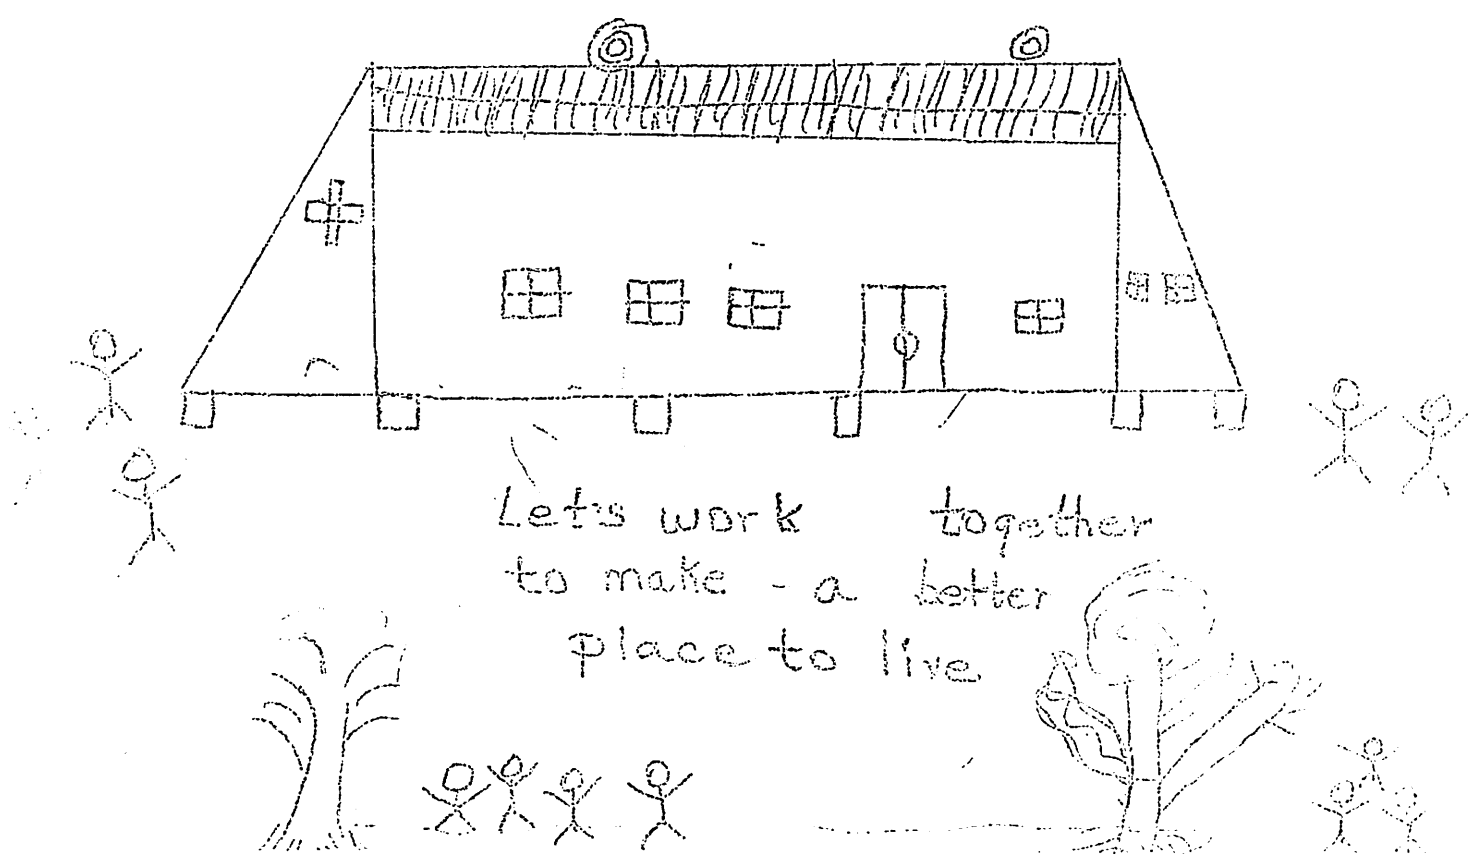 Let's work together
to make - a better
place to live